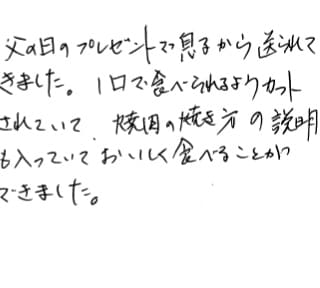 父の日のプレゼントで息子から送られて
きました。1口で食べられるようカット
されていて、焼肉の焼き方の説明
も入っていておいしく食べることが
できました。